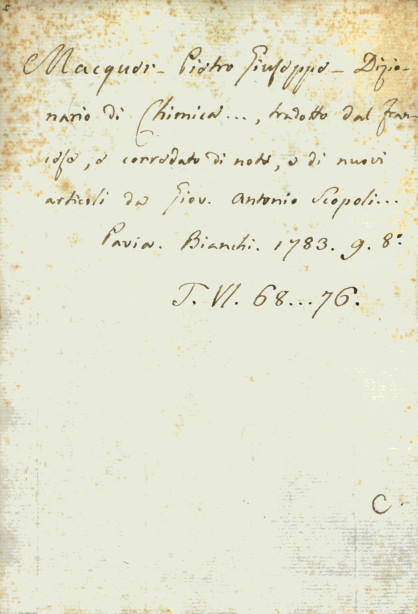 Macquer - Pietro Giuseppe - Dizio-
nario di Chimica..., tradotto dal fran-
cese, e corredato di note, e di nuovi
articoli da Giov. Antonio Scopoli...
Pavia. Bianchi. 1783. 9. 8.º
T. VI. 68...76.
C.